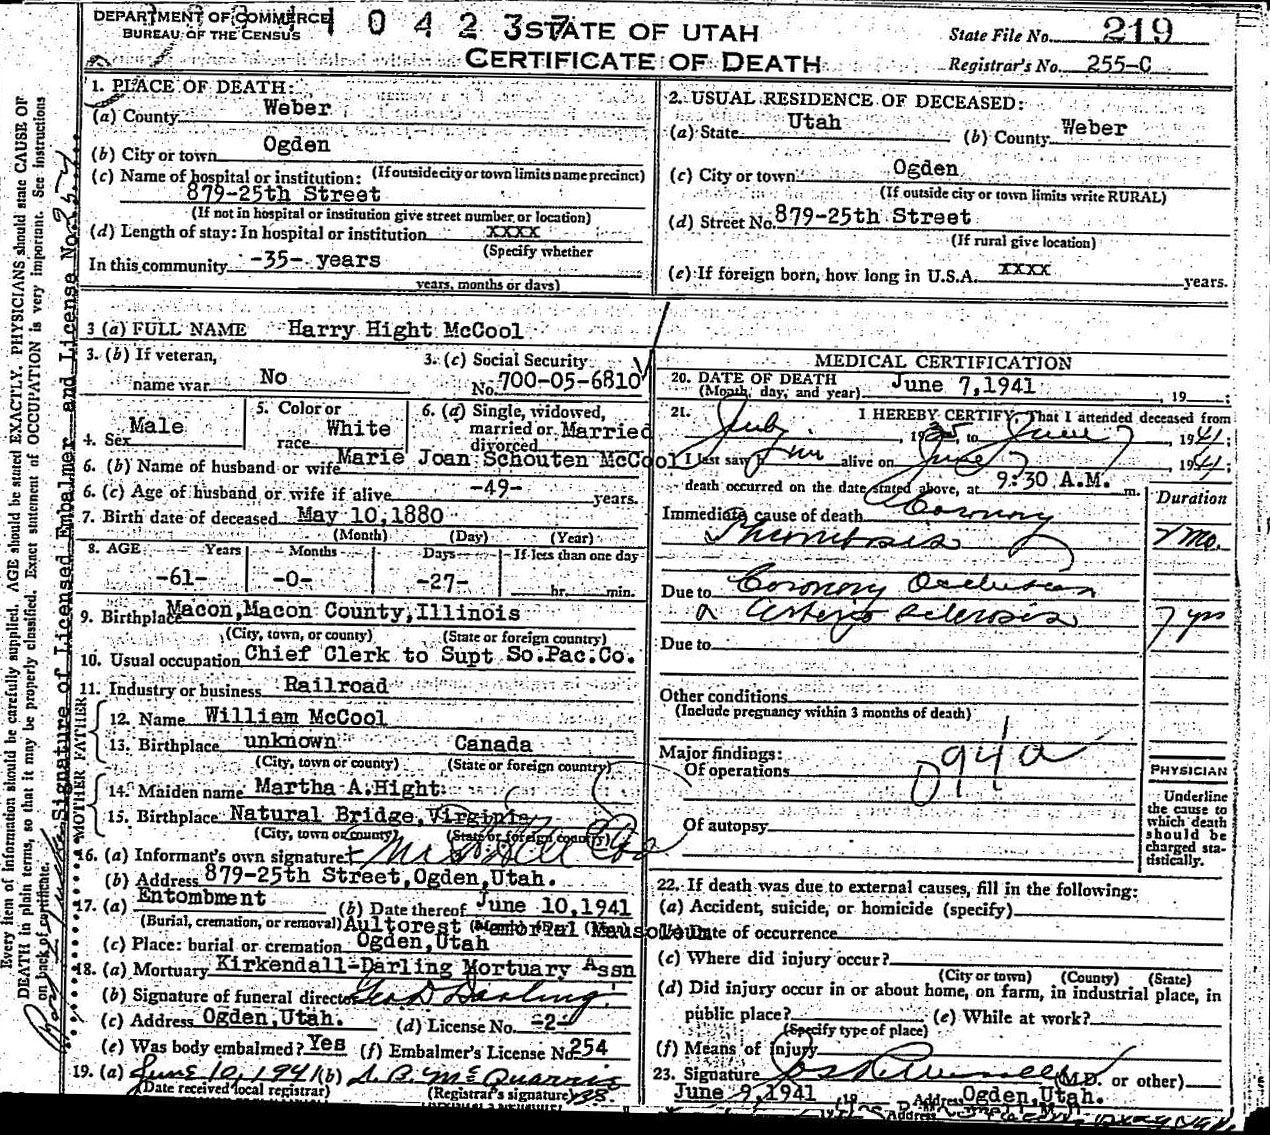 DEPARTMENT OF COMMERCE
BUREAU OF THE CENSUS
1 0 4 2 3 7
STATE OF UTAH
CERTIFICATE OF DEATH
State File No. 219
Registrar's No. 255-C
1. PLACE OF DEATH:
(a) County Weber
(b) City or town Ogden
(If outside city or town limits name precinct)
(c) Name of hospital or institution:
879-25th Street
(If not in hospital or institution give street number or location)
(d) Length of stay: In hospital or institution xxxx
(Specify whether
In this community -35- years
years, months or days)
2. USUAL RESIDENCE OF DECEASED:
(a) State Utah (b) County Weber
(c) City or town Ogden
(If outside city or town limits write RURAL)
(d) Street No. 879-25th Street
(If rural give location)
(e) If foreign born, how long in U.S.A. xxxx years.
3 (a) FULL NAME Harry Hight McCool
3. (b) If veteran, name war No
3. (c) Social Security No. 700-05-6810
4. Sex Male
5. Color or race White
6. (a) Single, widowed, married or divorced Married
6. (b) Name of husband or wife Marie Joan Schouten McCool
6. (c) Age of husband or wife if alive -49- years.
7. Birth date of deceased May 10,1880
(Month) (Day) (Year)
8. AGE Years Months Days If less than one day
-61- -0- -27- hr. min.
9. Birthplace Macon, Macon County, Illinois
(City, town, or county) (State or foreign country)
10. Usual occupation Chief Clerk to Supt So.Pac.Co.
11. Industry or business Railroad
FATHER
12. Name William McCool
13. Birthplace unknown Canada
(City, town or county) (State or foreign country)
MOTHER
14. Maiden name Martha A.Hight
15. Birthplace Natural Bridge, Virginia
(City, town or county) (State or foreign country)
16. (a) Informant's own signature Mrs
(b) Address 879-25th Street, Ogden, Utah.
17. (a) Entombment (b) Date thereof June 10,1941
(Burial, cremation, or removal)
Aultorest Memorial Mausoleum
(c) Place: burial or cremation Ogden, Utah
18. (a) Mortuary Kirkendall-Darling Mortuary Assn
(b) Signature of funeral director Geo D Darling
(c) Address Ogden, Utah. (d) License No. -2-
(e) Was body embalmed? Yes (f) Embalmer's License No. 254
19. (a) June 10, 1941 (b)
(Date received local registrar) (Registrar's signature)
MEDICAL CERTIFICATION
20. DATE OF DEATH June 7,1941, 19 ;
(Month, day, and year)
21. I HEREBY CERTIFY, That I attended deceased from
July, 19 to June 7, 1941;
I last saw him alive on June 7, 1941;
death occurred on the date stated above, at 9:30 A.M. m.
Duration
Immediate cause of death Coronary
Thrombosis mo.
Due to Coronary Occlusion
Arterio sclerosis 7 yrs
Due to
Other conditions
(Include pregnancy within 3 months of death)
Major findings:
Of operations
094a
Of autopsy
PHYSICIAN
Underline
the cause to
which death
should be
charged sta-
tistically.
22. If death was due to external causes, fill in the following:
(a) Accident, suicide, or homicide (specify)
(b) Date of occurrence
(c) Where did injury occur?
(City or town) (County) (State)
(d) Did injury occur in or about home, on farm, in industrial place, in
public place? (e) While at work?
(Specify type of place)
(f) Means of Injury
23. Signature (M.D. or other)
June 9,1941 Address Ogden, Utah.
Every item of information should be carefully supplied. AGE should be stated EXACTLY. PHYSICIANS should state CAUSE OF
DEATH in plain terms, so that it may be properly classified. Exact statement of OCCUPATION is very important. See instructions
on back of certificate.
Signature of Licensed Embalmer and License No. 254